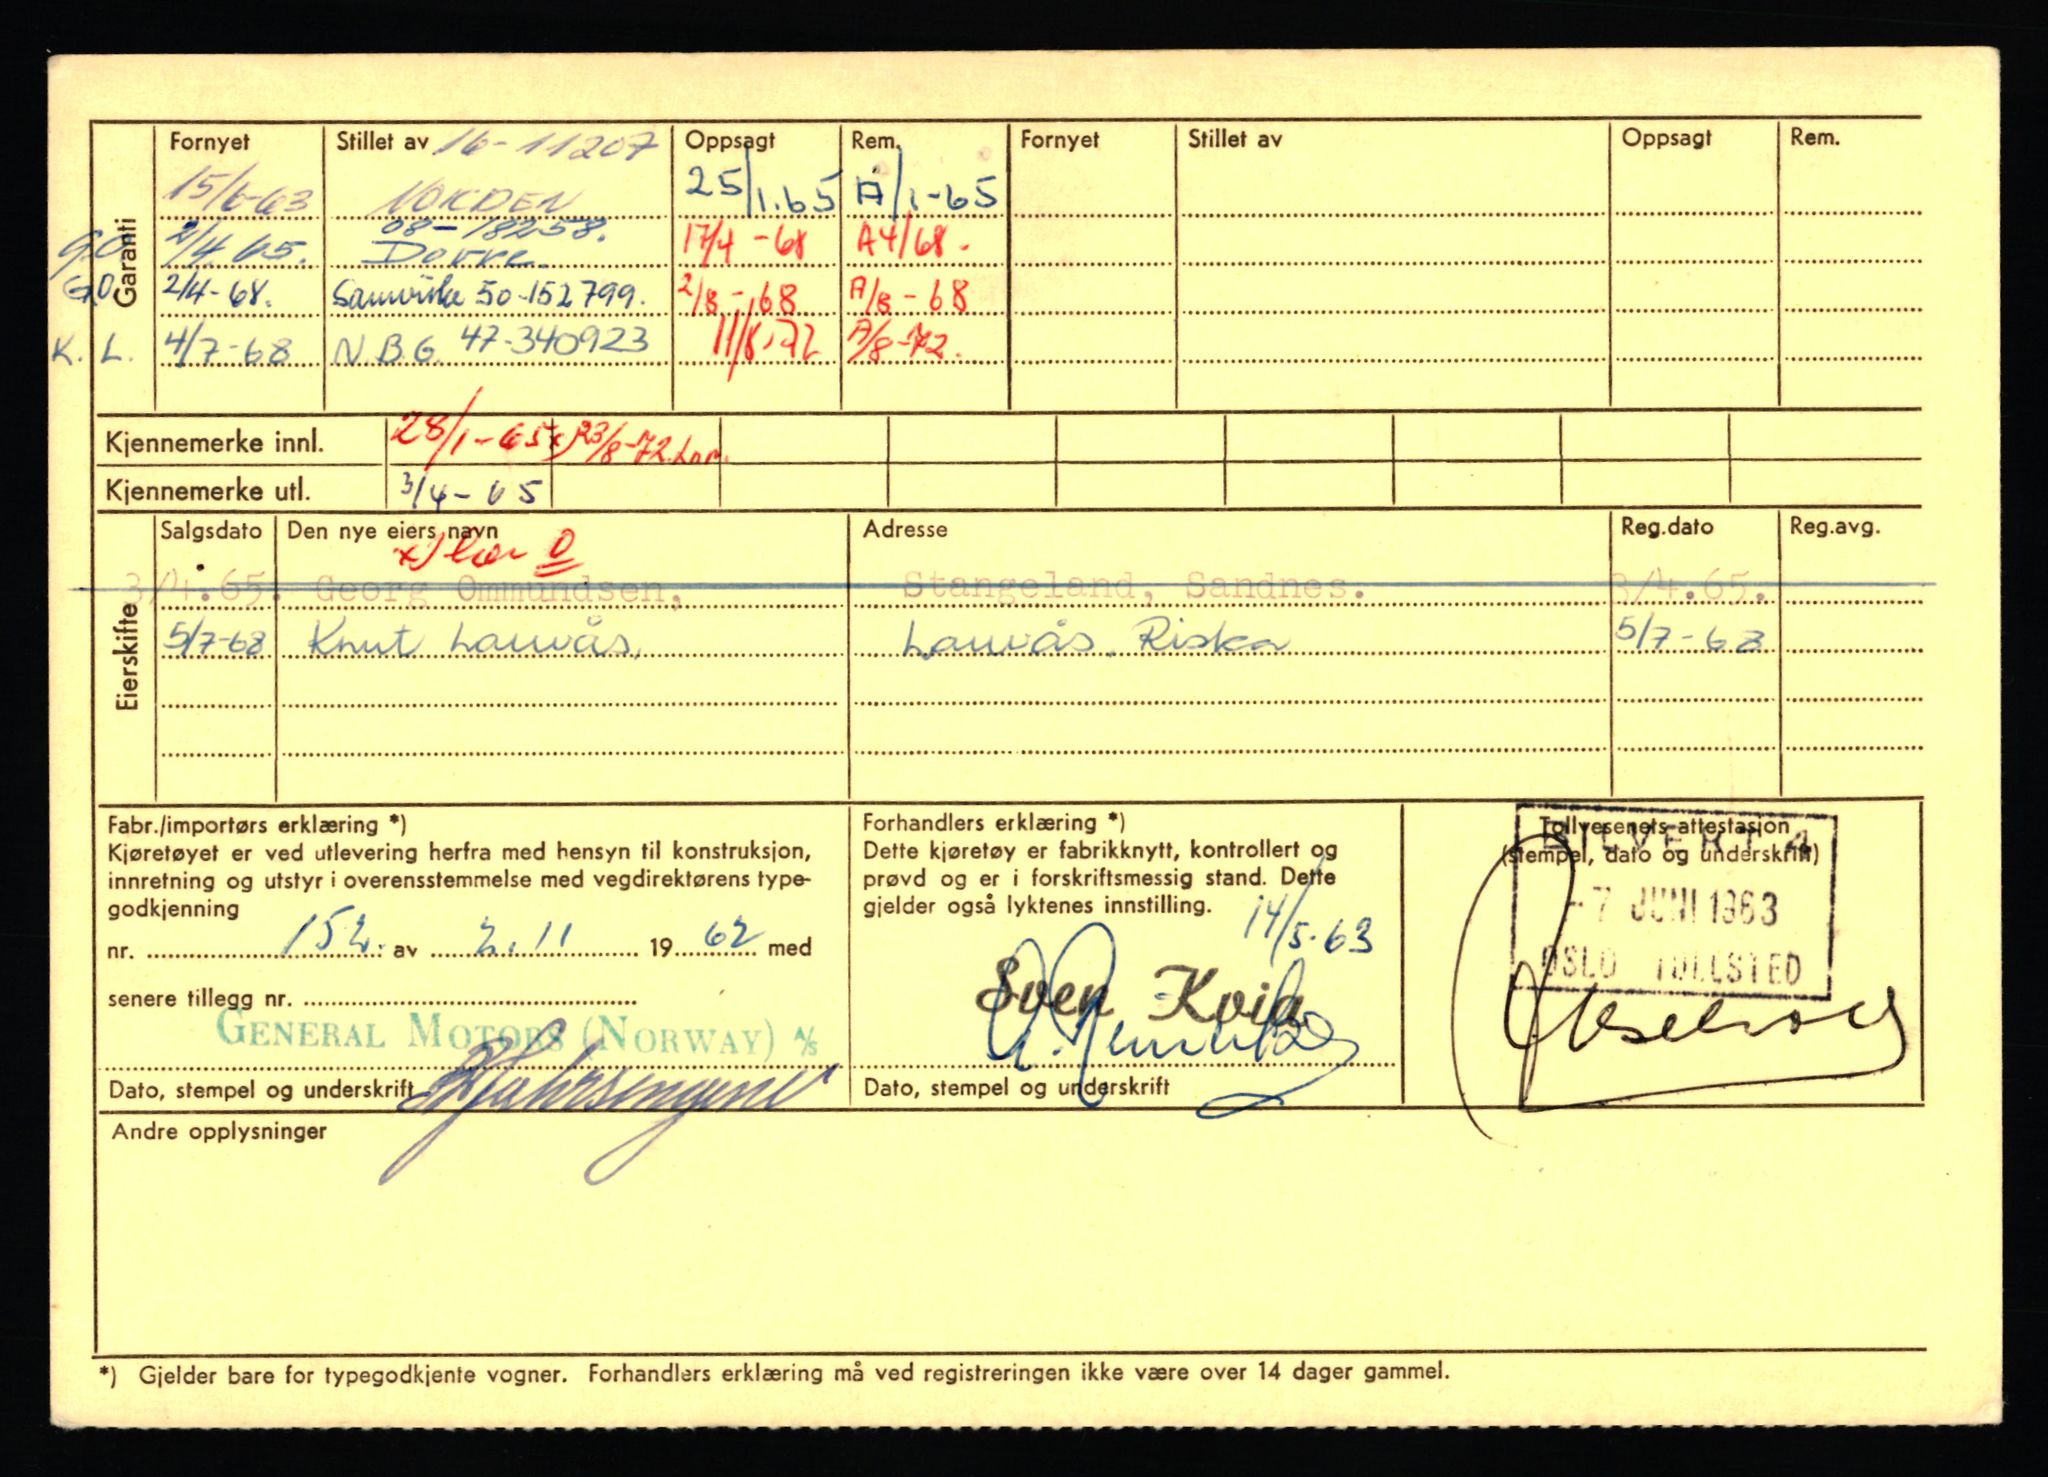 Garanti
Fornyet Stillet av 16-11207 Oppsagt Rem. Fornyet Stillet av Oppsagt Rem.
15/6-63 NORDEN 25/1.65 A/1-65
G.O. 2/4.65. 08-18258. Dovre 17/4-68 A4/68.
G.O. 2/4-68. Samvirke 50-152799. 2/8-68 A/8-68
K. L. 4/7-68 N.B.G. 47-340923 11/8-72 A/8-72.
Kjennemerke innl. 28/1-65 x) 23/8-72
Kjennemerke utl. 3/4-65
Eierskifte
Salgsdato Den nye eiers navn Adresse Reg.dato Reg.avg.
3/4.65. Georg Ommundsen, Stangeland, Sandnes. 3/4.65.
5/7-68 Knut Lauvås, Lauvås, Riska 5/7-68
Fabr./importørs erklæring *)
Kjøretøyet er ved utlevering herfra med hensyn til konstruksjon,
innretning og utstyr i overensstemmelse med vegdirektørens type-
godkjenning
nr. 152. av 2.11 1962 med
senere tillegg nr.
GENERAL MOTORS (NORWAY) A/S
Dato, stempel og underskrift
Forhandlers erklæring *)
Dette kjøretøy er fabrikknytt, kontrollert og
prøvd og er i forskriftsmessig stand. Dette
gjelder også lyktenes innstilling.
14/5-63
Sven Kvia
Dato, stempel og underskrift
Tollvesenets attestasjon
(stempel, dato og underskrift)
-7 JUNI 1963
OSLO TOLLSTED
Andre opplysninger
*) Gjelder bare for typegodkjente vogner. Forhandlers erklæring må ved registreringen ikke være over 14 dager gammel.